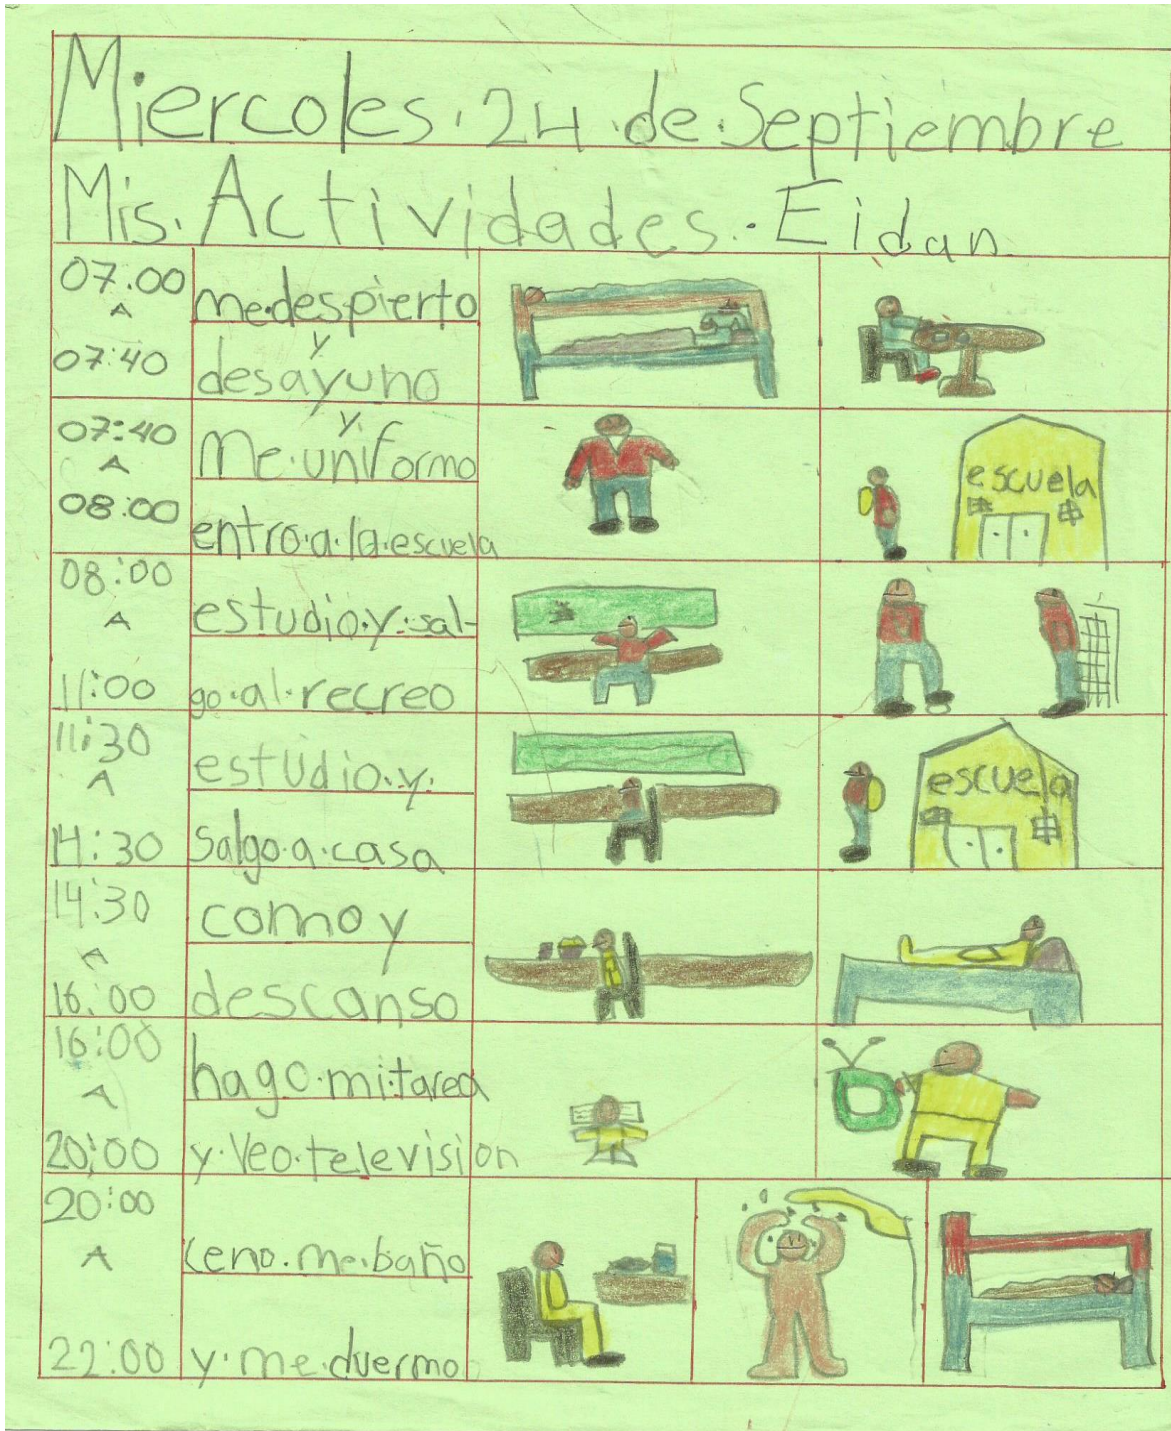 Miercoles.24.de.Septiembre
Mis.Actividades.Eidan
07.00
A
07:40
me.despierto
y
desayuno
07:40
A
08:00
y.
Me.uniformo
entro.a.la.escuela
escuela
08:00
A
11:00
estudio.y.sal-
go.al.recreo
11:30
A
14:30
estudio.y.
salgo.a.casa
escuela
14:30
A
16:00
como y
descanso
16:00
A
20:00
hago.mi.tarea
y.veo.television
20:00
A
22:00
ceno.me.baño
y.me.duermo